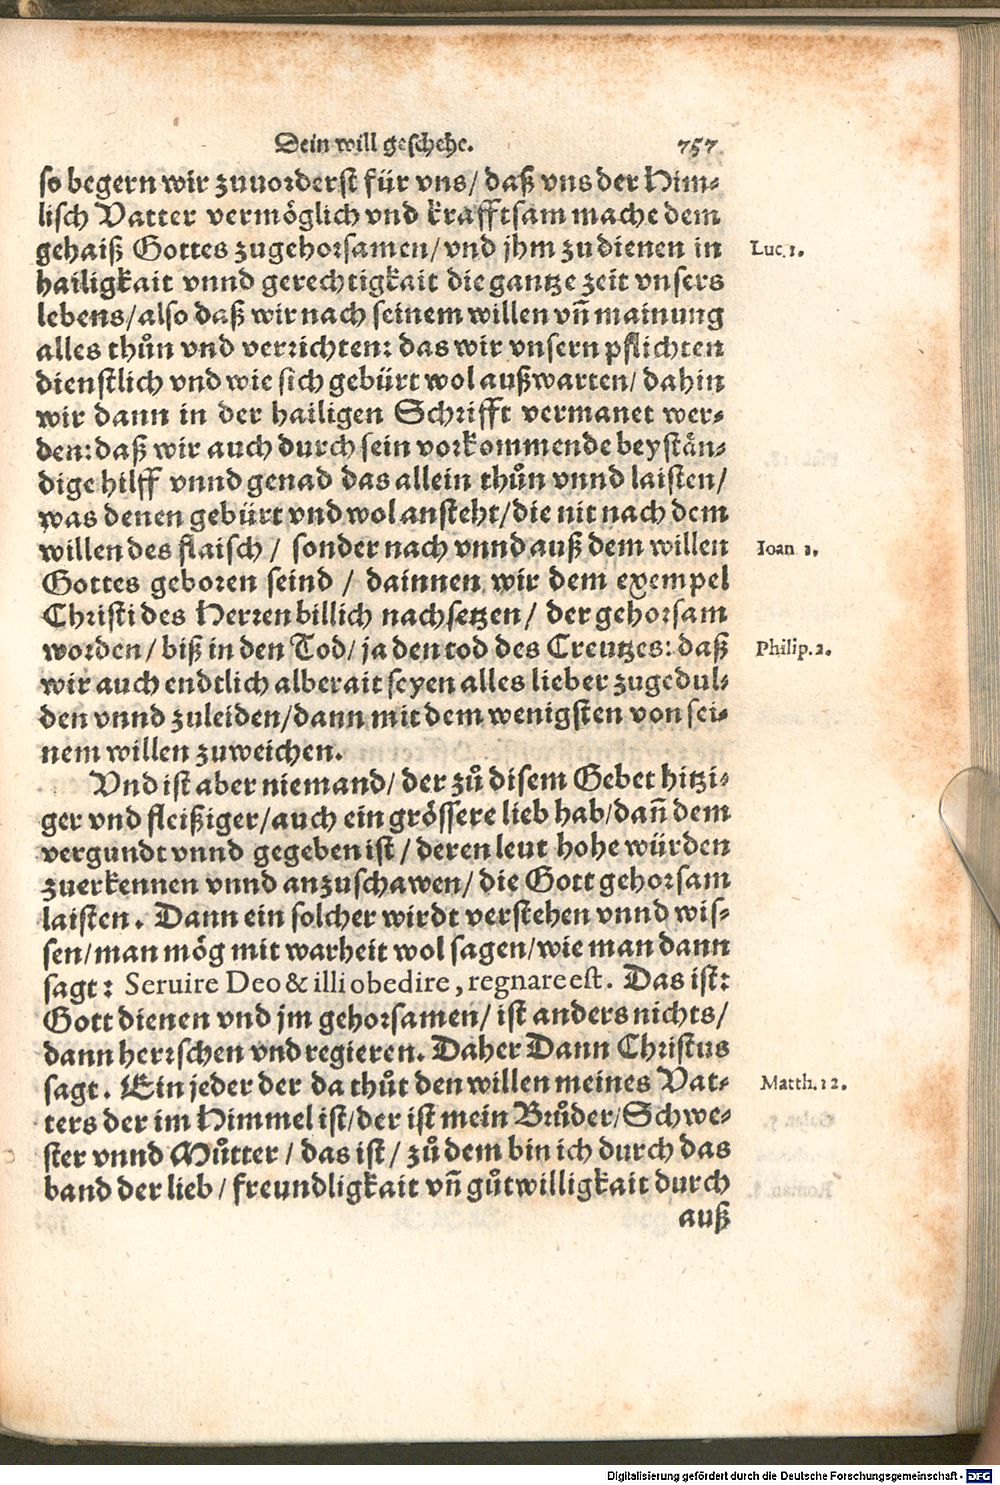 Dein will geschehe. 757
so begern wir zuuorderst für vns/ daß vns der Him-
lisch Vatter vermöglich vnd krafftsam mache dem
gehaiß Gottes zugehorsamen/ vnd jhm zudienen in
Luc. 1.
hailigkait vnnd gerechtigkait die gantze zeit vnsers
lebens/ also daß wir nach seinem willen vñ mainung
alles thůn vnd verrichten: das wir vnsern pflichten
dienstlich vnd wie sich gebürt wol außwarten/ dahin
wir dann in der hailigen Schrifft vermanet wer-
den: daß wir auch durch sein vorkommende beystän-
dige hilff vnnd genad das allein thůn vnnd laisten/
was denen gebürt vnd wol ansteht/ die nit nach dem
willen des flaisch / sonder nach vnnd auß dem willen
Ioan 1.
Gottes geboren seind / dainnen wir dem exempel
Christi des Herren billich nachsetzen/ der gehorsam
worden/ biß in den Tod/ ja den tod des Creutzes: daß
Philip. 2.
wir auch endtlich alberait seyen alles lieber zugedul-
den vnnd zuleiden/ dann mit dem wenigsten von sei-
nem willen zuweichen.
Vnd ist aber niemand/ der zů disem Gebet hitzi-
ger vnd fleißiger/ auch ein grössere lieb hab/ dañ dem
vergundt vnnd gegeben ist / deren leut hohe würden
zuerkennen vnnd anzuschawen/ die Gott gehorsam
laisten. Dann ein solcher wirdt verstehen vnnd wis-
sen/ man mög mit warheit wol sagen/ wie man dann
sagt: Seruire Deo & illi obedire, regnare est. Das ist:
Gott dienen vnd jm gehorsamen/ ist anders nichts/
dann herrschen vnd regieren. Daher Dann Christus
sagt. Ein jeder der da thůt den willen meines Vat-
Matth. 12.
ters der im Himmel ist/ der ist mein Brůder/ Schwe-
ster vnnd Můtter / das ist / zů dem bin ich durch das
band der lieb / freundligkait vñ gůtwilligkait durch
auß
Digitalisierung gefördert durch die Deutsche Forschungsgemeinschaft - DFG